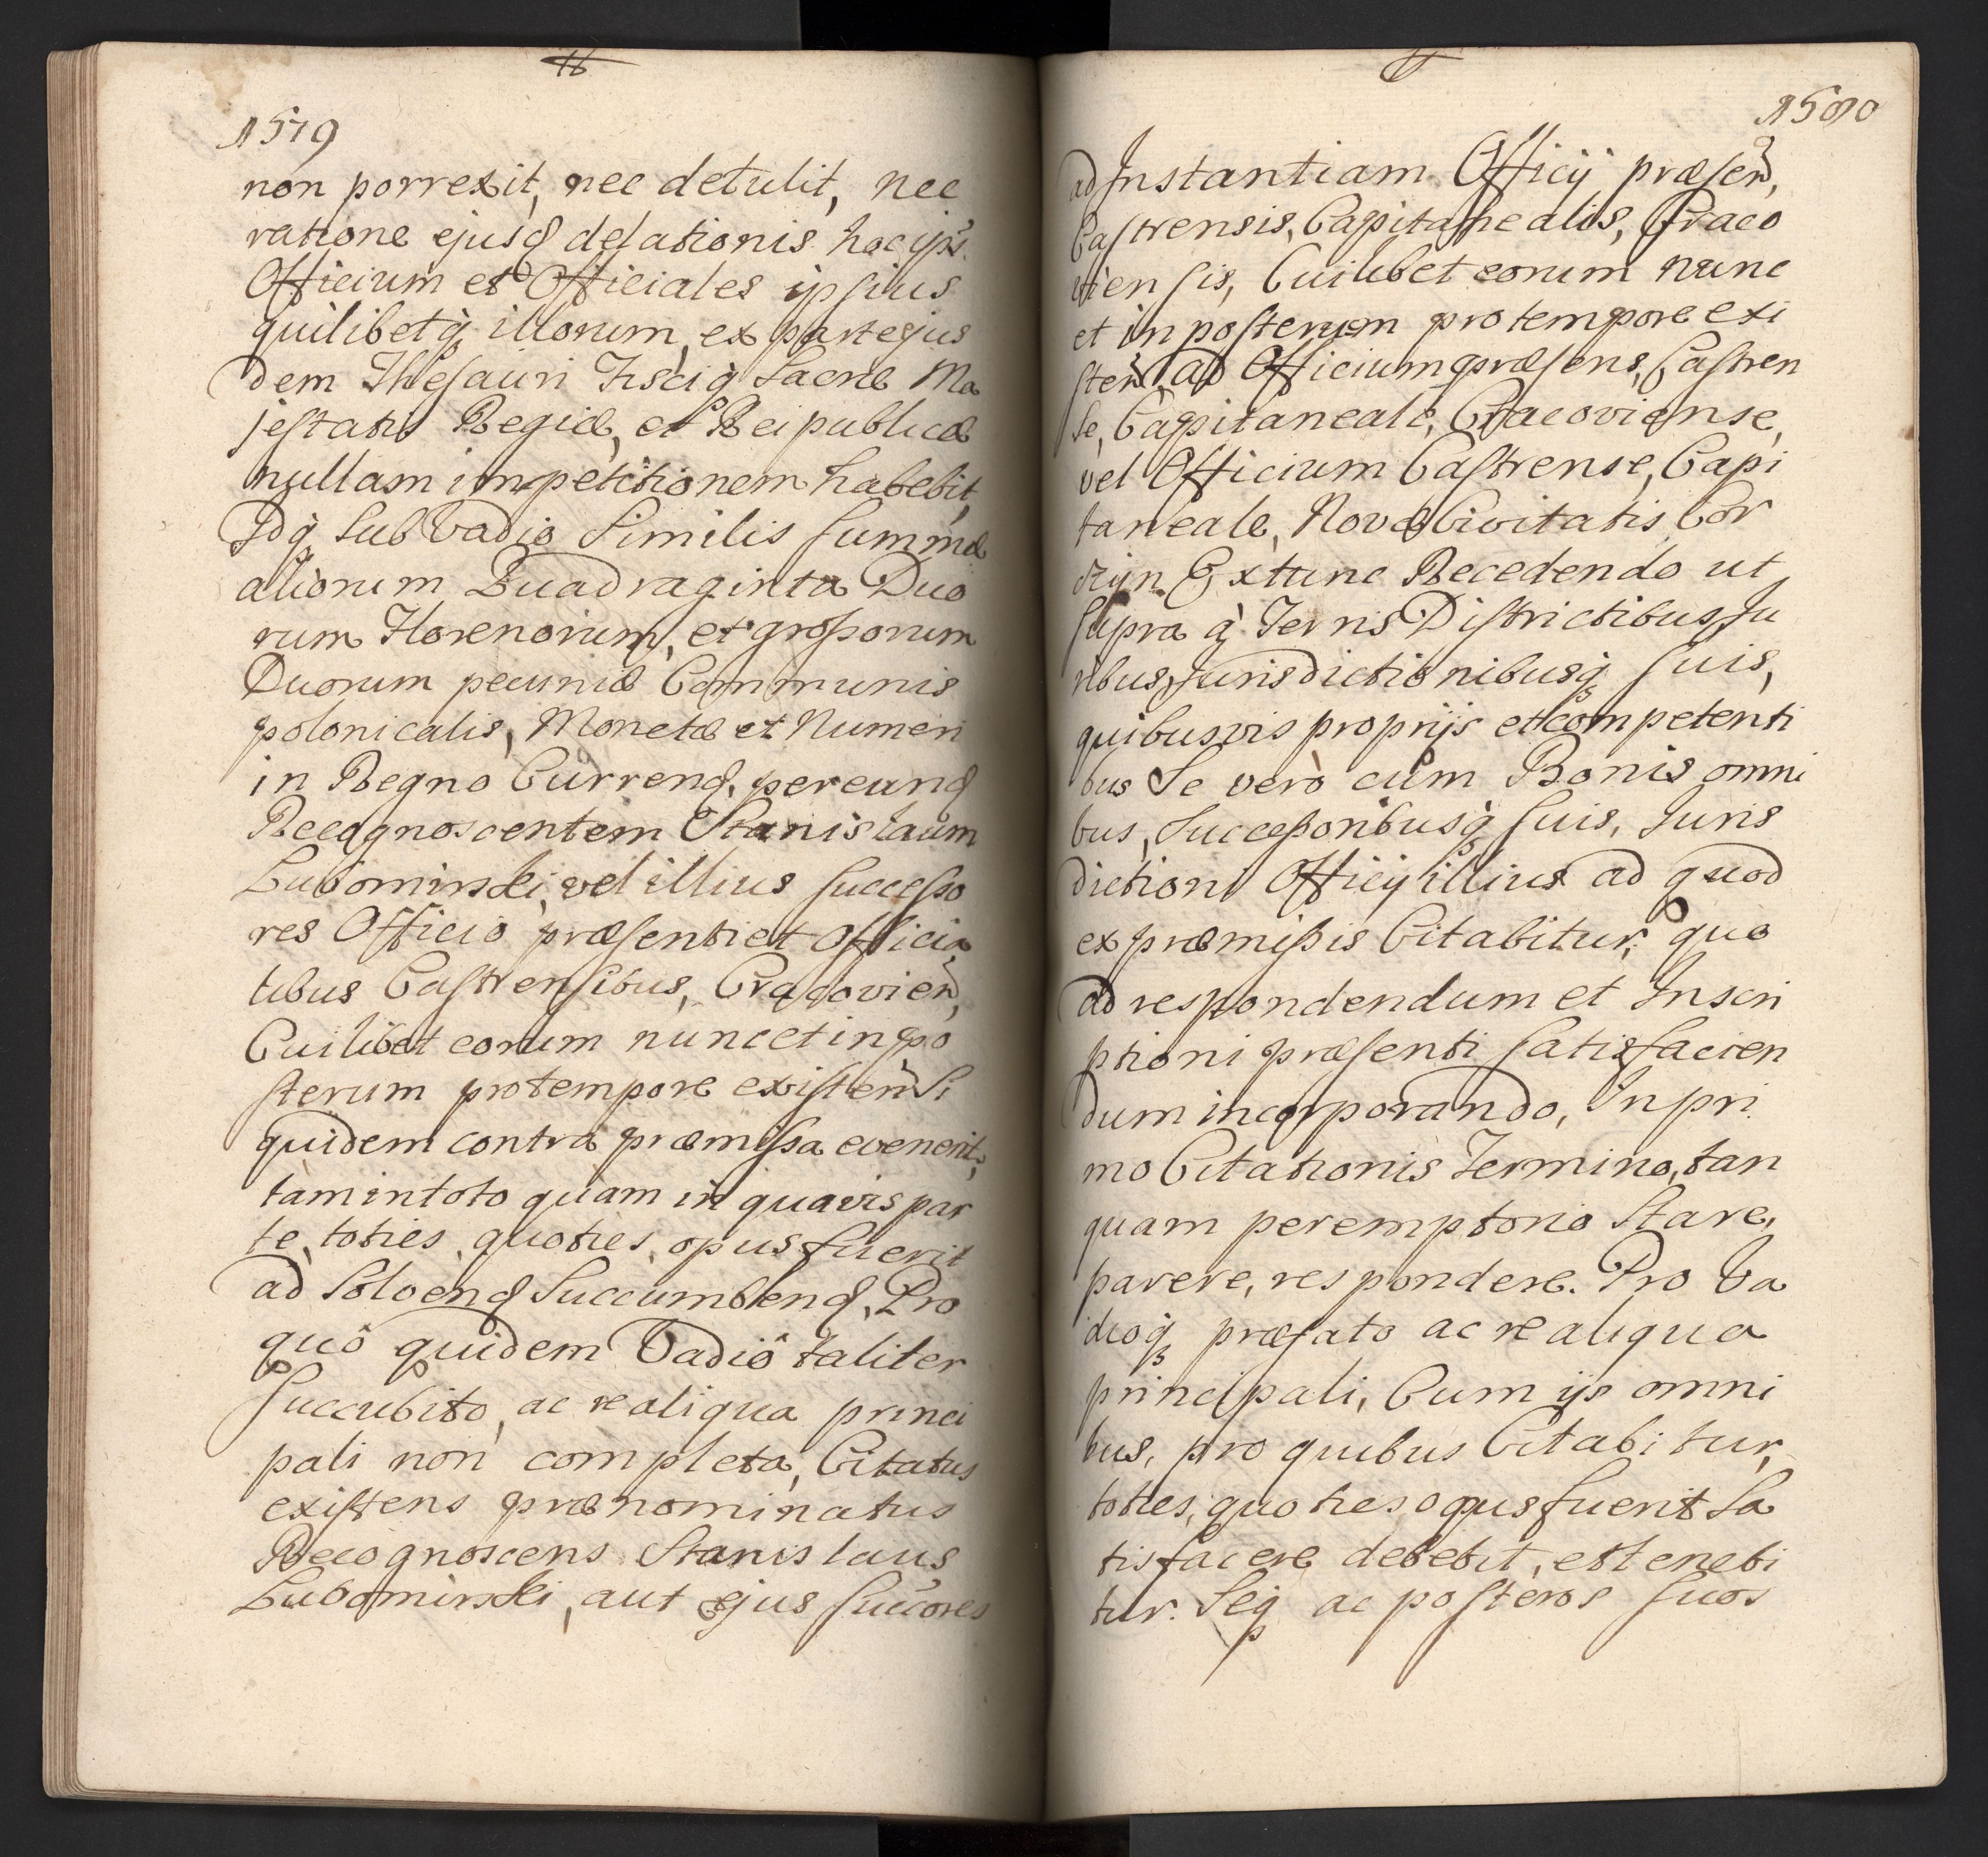 1579
non porrexit, nec detulit, nec
ratione ejusd delationis hoc ips
Officium et Officiales ipsius
quilibetq illorum, ex parte ejus
dem Thesauri Fisciq Sacræ Ma
jestatis Regiæ, et Reipublicæ
nullam impetitionem habebit,
Idq sub Vadio Similis summæ
aliorum Quadraginta Duo
rum Florenorum, et grossorum
Duorum pecuniæ Communis
polonicalis, Monetæ et Numeri
in Regno Currend, per eund
Recognoscentem Stanislaum
Lubomirski, vel illius successo
res Officio præsenti et Officia
libus Castrensibus, Cracovien,
Cuilibet eorum nunc et in po
sterum pro tempore existen Si
quidem contra præmissa evenerit,
tàm in toto quàm in quavis par
te, toties, quoties, opus fuerit
ad Solvend Succumbend, Pro
quô quidem Vadiô taliter
Succubito, ac re aliqua princi
pali non completa, Citatus
existens prænominatus
Recognoscens Stanislaus
Lubomirski, aut ejus succores
1580
ad Instantiam Officij præsen,
Castrensis, Capitanealis, Craco
viensis, Cuilibet eorum nunc
et in posterum pro tempore exi
sten ad Officium præsens, Castren
se, Capitaneale, Cracoviense,
vel Officium Castrense, Capi
taneale, Novæ Civitatis Cor
czyn Extunc Recedendo ut
supra q Terris Districtibus Ju
ribus, Jurisdictionibusq suis,
quibusvis proprijs et competenti
bus Se verò cum Bonis omni
bus, Successoribusq suis, Juris
dictioni Officij illius ad quod
ex præmissis Citabitur, quo
ad respondendum et Inscri
ptioni præsenti satisfacien
dum incorporando, In pri
mo Citationis Termino, tan
quam peremptorio Stare,
parere, respondere. Pro Va
dioq præfato ac re aliqua
principali, Cum ijs omni
bus, pro quibus Citabitur,
toties, quoties opus fuerit Sa
tisfacere debebit, et tenebi
tur. Seq ac posteros suos